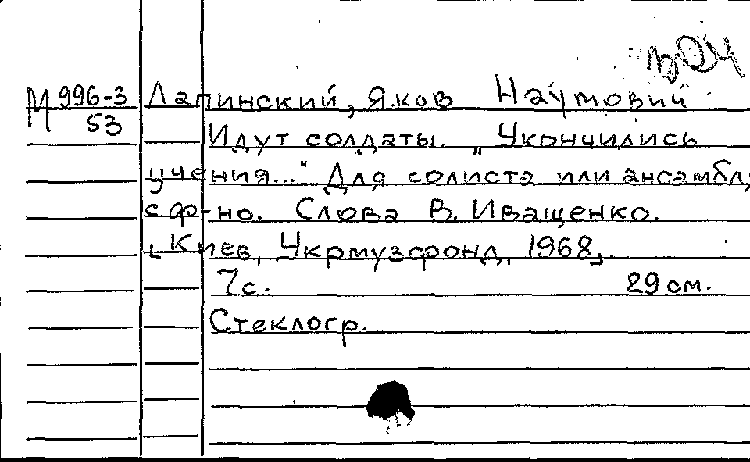 М 996-3
53
Лапинский, Яков Наумович
Идут солдаты. „Укончились
учения..." Для солиста или ансамбл
с ф-но. Слова В. Иващенко.
[Киев, Укрмузфонд, 1968].
7с. 29 см.
Стеклогр.